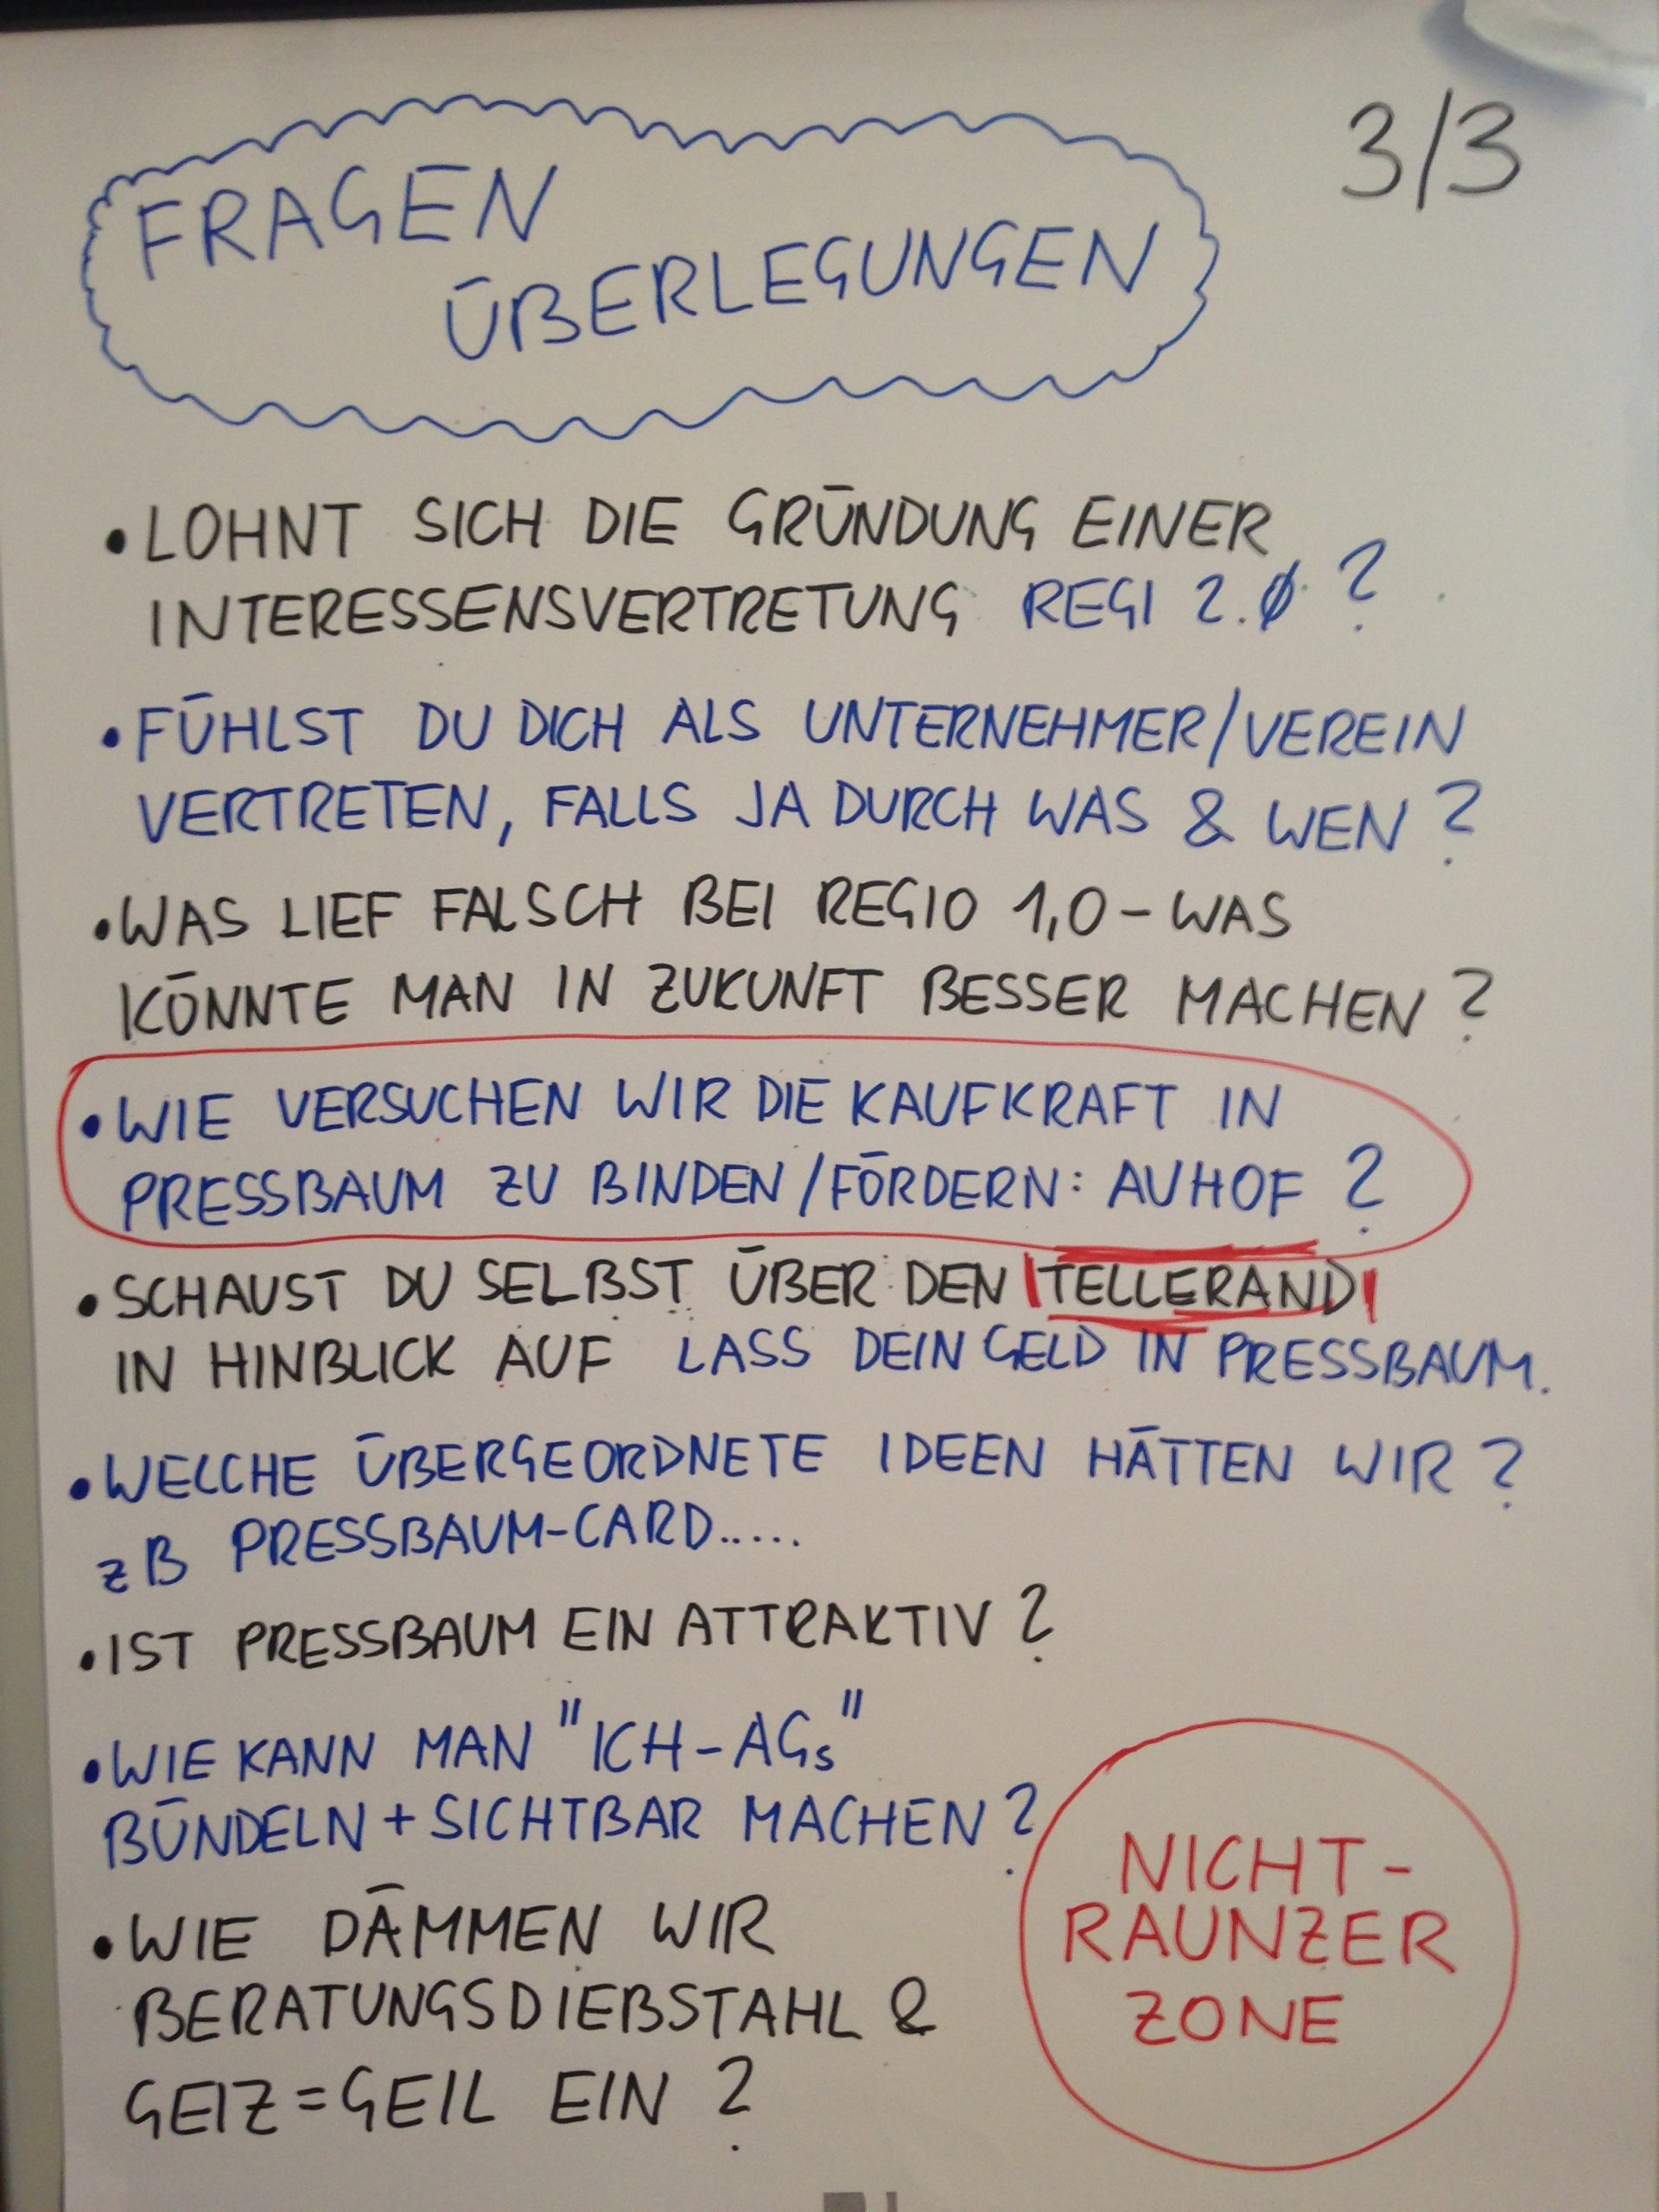 3/3
FRAGEN
ÜBERLEGUNGEN
• LOHNT SICH DIE GRÜNDUNG EINER
INTERESSENSVERTRETUNG REGI 2.Ø ?
• FÜHLST DU DICH ALS UNTERNEHMER/VEREIN
VERTRETEN, FALLS JA DURCH WAS & WEN ?
• WAS LIEF FALSCH BEI REGIO 1,0 – WAS
KÖNNTE MAN IN ZUKUNFT BESSER MACHEN ?
• WIE VERSUCHEN WIR DIE KAUFKRAFT IN
PRESSBAUM ZU BINDEN/FÖRDERN: AUHOF ?
• SCHAUST DU SELBST ÜBER DEN |TELLERAND|
IN HINBLICK AUF LASS DEIN GELD IN PRESSBAUM.
• WELCHE ÜBERGEORDNETE IDEEN HÄTTEN WIR ?
zB PRESSBAUM-CARD.....
• IST PRESSBAUM EIN ATTRAKTIV ?
• WIE KANN MAN "ICH-AGs"
BÜNDELN + SICHTBAR MACHEN ?
• WIE DÄMMEN WIR
BERATUNGSDIEBSTAHL &
GEIZ = GEIL EIN ?
NICHT-
RAUNZER
ZONE